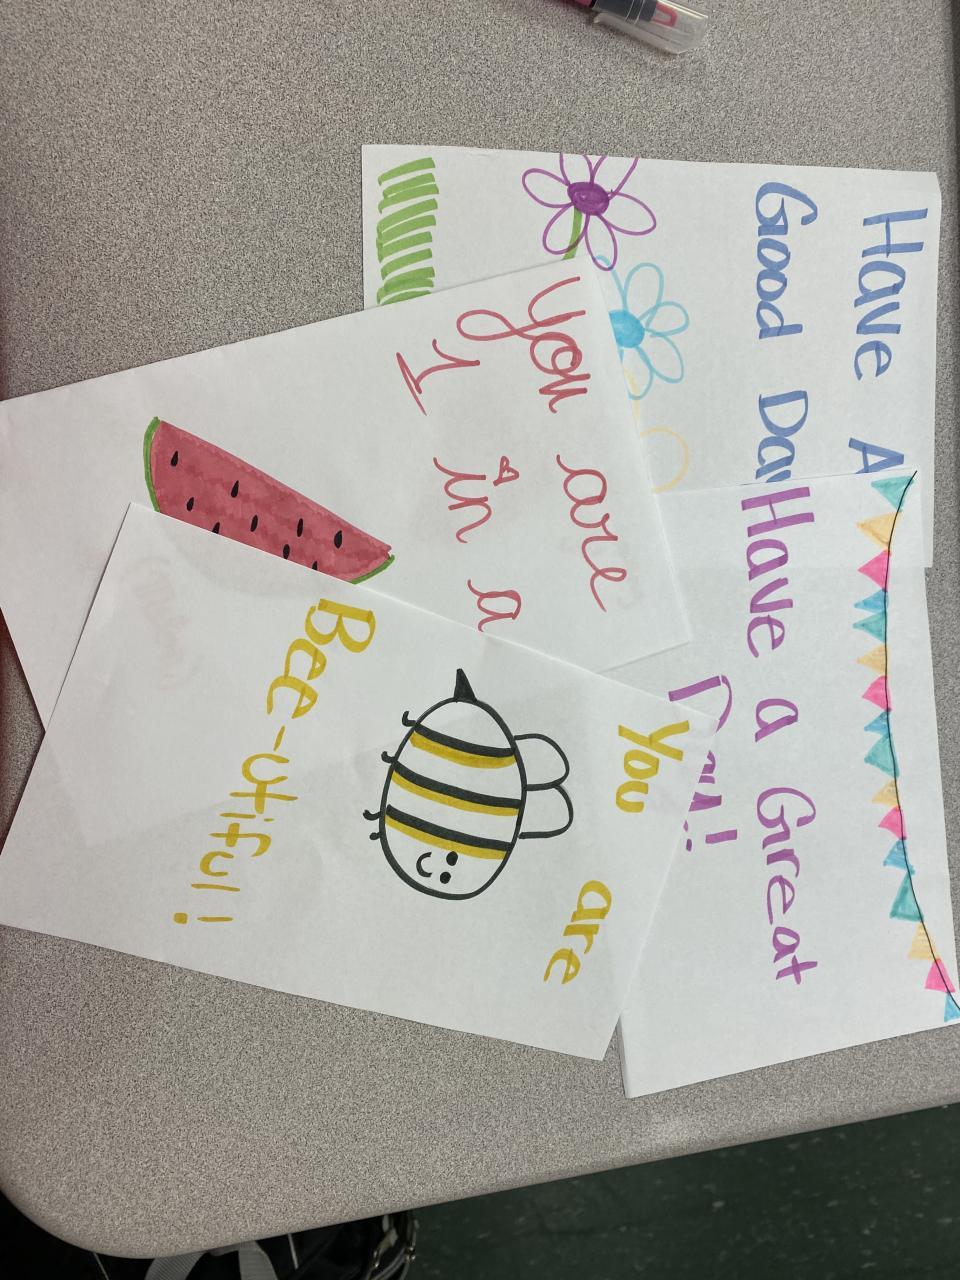 Have A
Good Day
Have a Great
Day!
You are
1 in a
You
are
Bee-utiful!